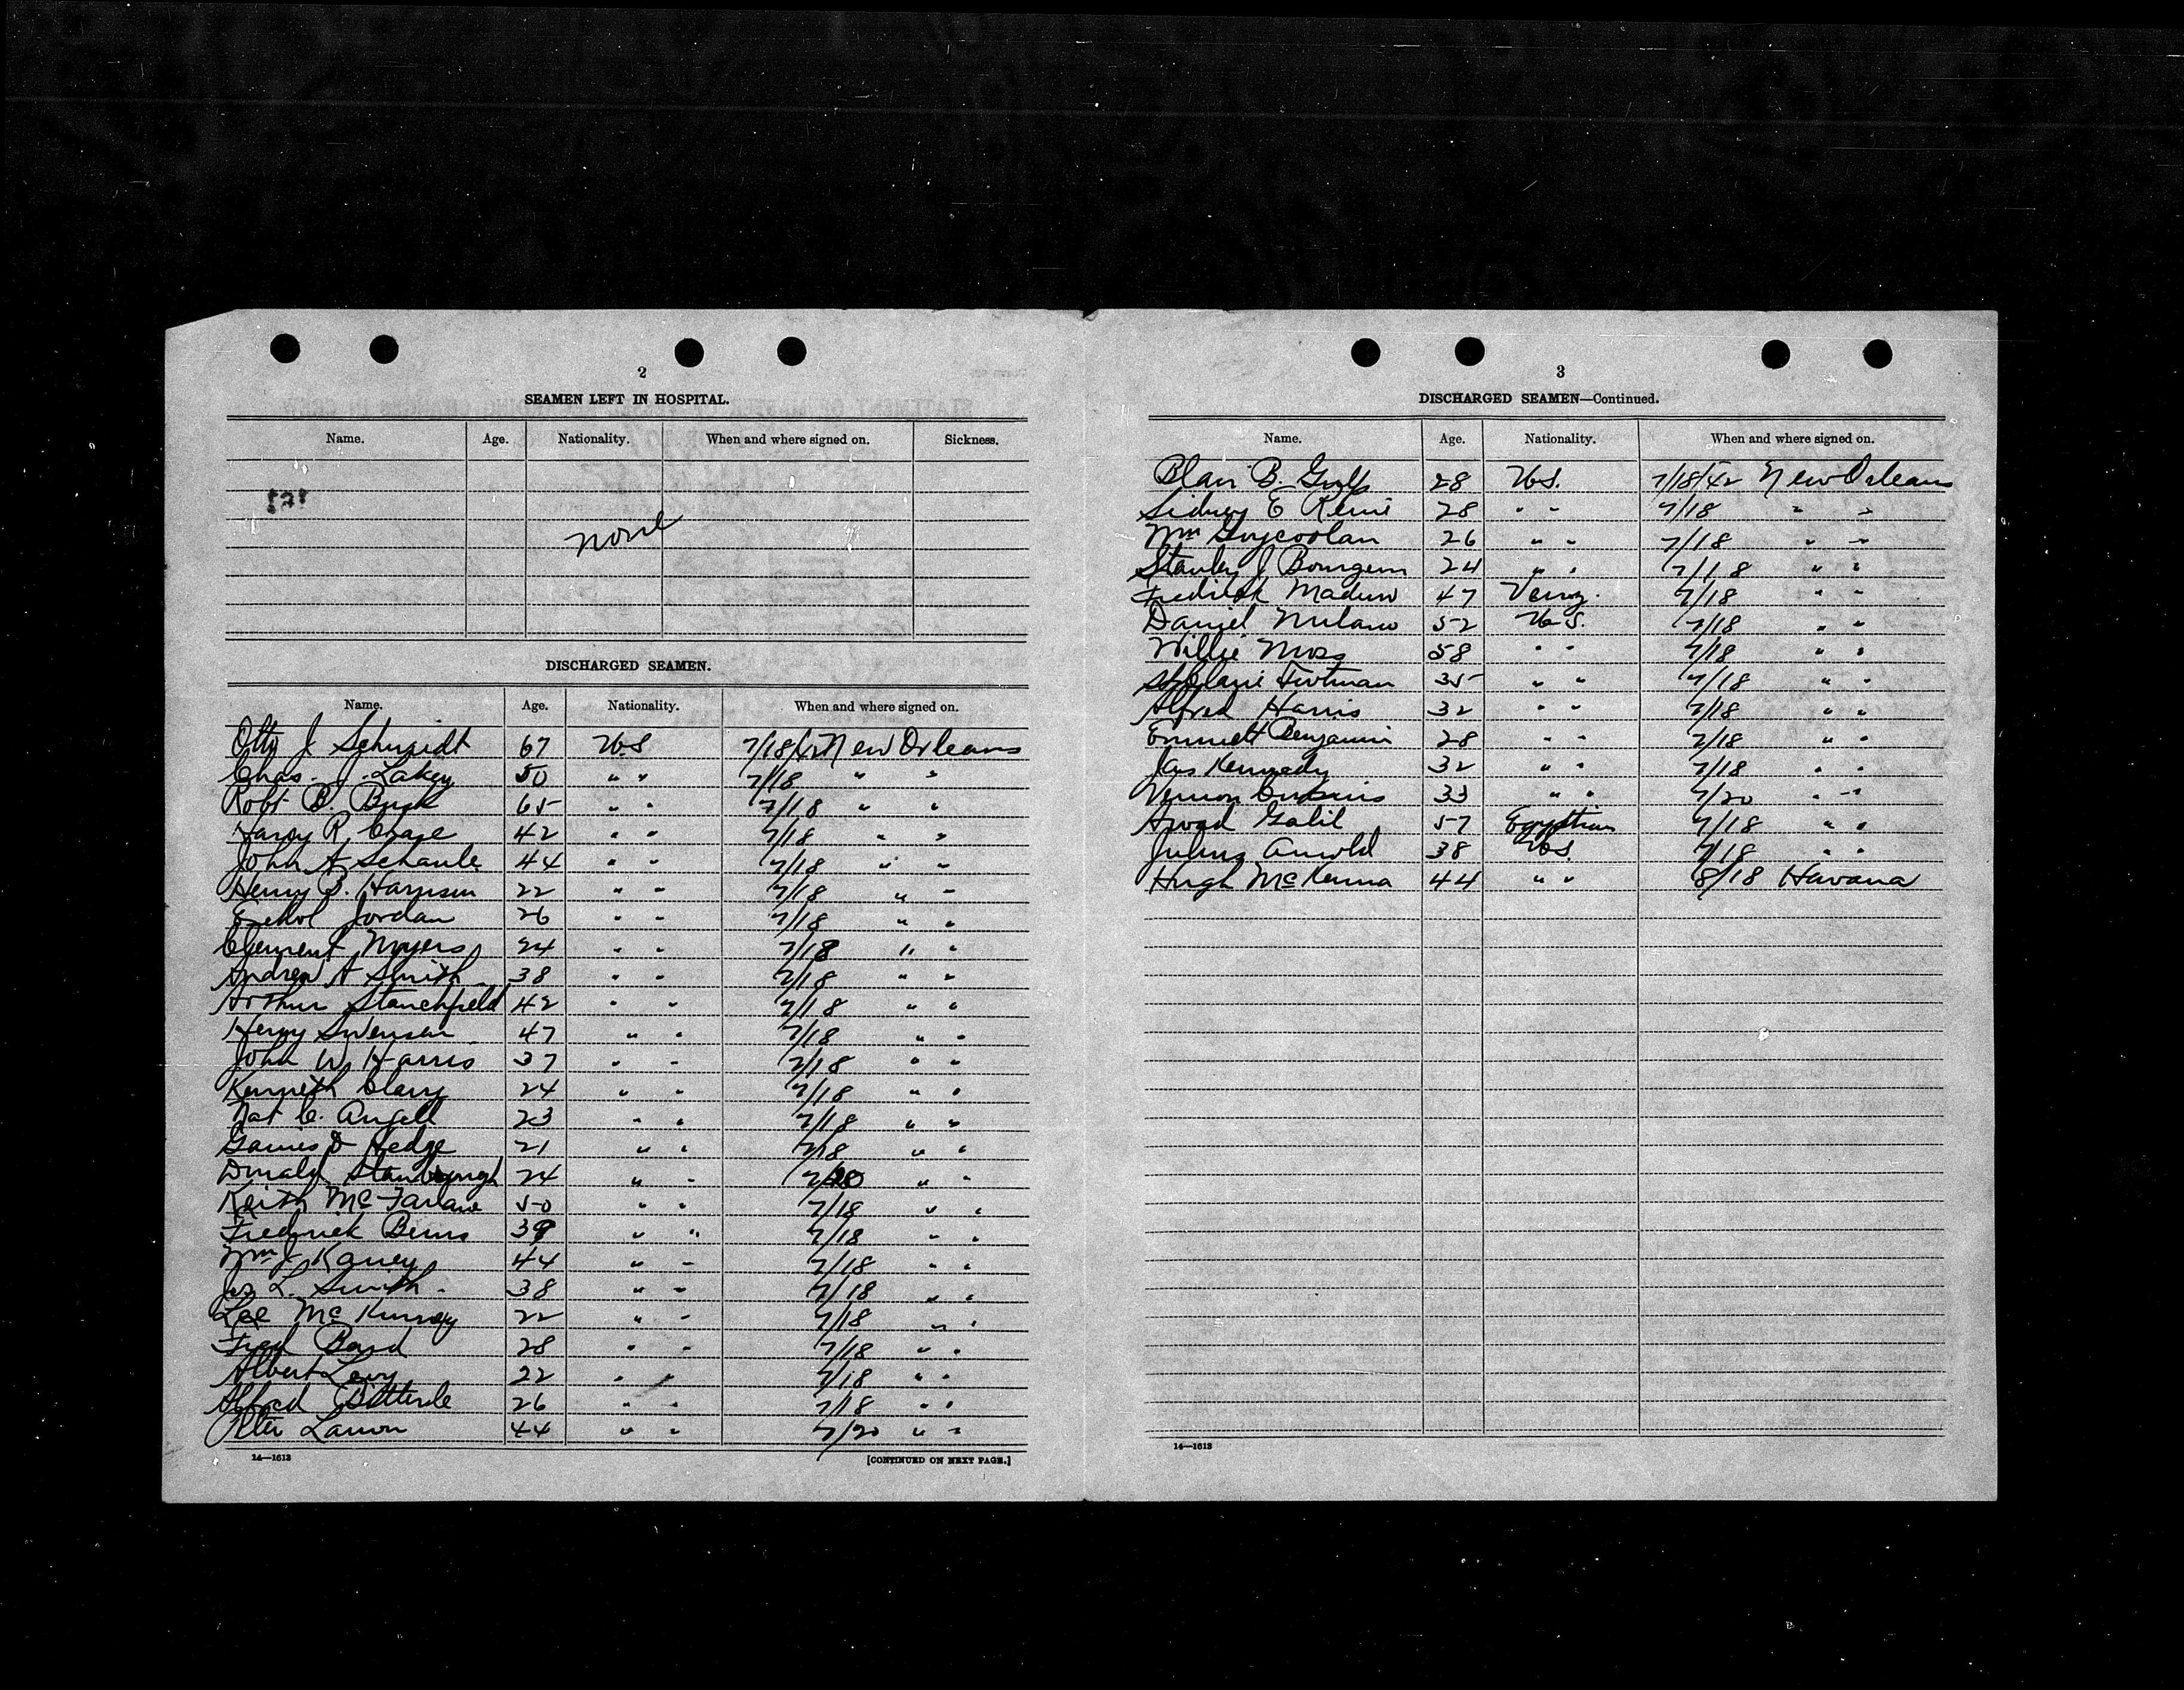 2
SEAMEN LEFT IN HOSPITAL.
Name. Age. Nationality. When and where signed on. Sickness.
none
DISCHARGED SEAMEN.
Name. Age. Nationality. When and where signed on.
Otto J Schmidt 67 U.S 7/18/42 New Orleans
Chas. J. Lakey 50 " " 7/18 " "
Robt B. Buck 65 " " 7/18 " "
Harry R. Chase 42 " " 7/18 " "
John A Schaule 44 " " 7/18 " "
Henry B. Harrison 22 " " 7/18 " "
Jordan 26 " " 7/18 " "
Clement Moyers 24 " " 7/18 " "
Andrew A Smith 38 " " 7/18 " "
Arthur Stanchfield 42 " " 7/18 " "
Henry Swensen 47 " " 7/18 " "
John W Harris 37 " " 7/18 " "
Kenneth Clary 24 " " 7/18 " "
Nat C. Angell 23 " " 7/18 " "
Games D Hedge 21 " " 7/18 " "
Donald Stanbrough 24 " " 7/20 " "
Keith McFarlane 50 " " 7/18 " "
Frederick Beins 39 " " 7/18 " "
Wm J Kaney 44 " " 7/18 " "
Jos L. Smith. 38 " " 7/18 " "
Lee McKinney 22 " " 7/18 " "
Fred Bond 28 " " 7/18 " "
Albert Levy 22 " " 7/18 " "
Alfred 26 " " 7/18 " "
Peter 44 " " 7/20 " "
14—1613 [CONTINUED ON NEXT PAGE.]
3
DISCHARGED SEAMEN—Continued.
Name. Age. Nationality. When and where signed on.
Blair B. 28 U.S. 7/18/42 New Orleans
Sidney E 28 " " 7/18 " "
Wm Goycoolan 26 " " 7/18 " "
Stanley J 24 " " 7/18 " "
Fredrick Maduro 47 Venez. 7/18 " "
Daniel Milano 52 U.S. 7/18 " "
Willie Moss 58 " " 7/18 " "
35 " " 7/18 " "
Alfred Harris 32 " " 7/18 " "
Emmett Benjamin 28 " " 7/18 " "
Jas Kennedy 32 " " 7/18 " "
Vernon 33 " " 7/20 " "
Awad Galil 57 Egyptian 7/18 " "
Julius Arnold 38 U.S. 7/18 " "
Hugh McKenna 44 " " 8/18 Havana
14—1613